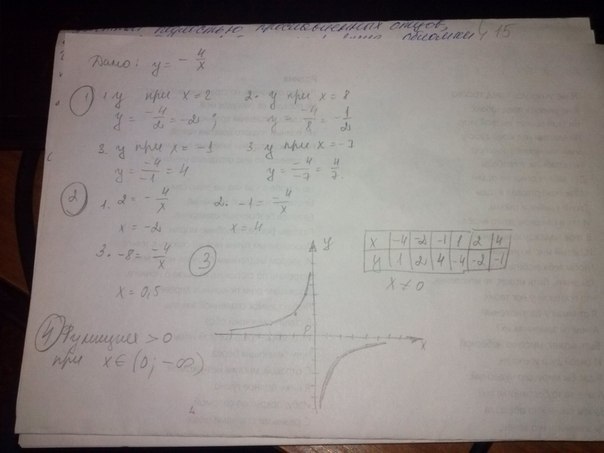 Дано: y = - 4/x
① 1. y при x=2   2. y при x=8
y = -4/2 = -2 ;   y = -4/8 = -1/2
2. y при x = -1   3. y при x=-7
y = -4/-1 = 4   y = -4/-7 = 4/7.
② 1. 2 = -4/x   2. -1 = -4/x
x = -2   x = 4
3. -8 = -4/x   ③
x = 0,5
y
x
0
x -4 -2 -1 1 2 4
y 1 2 4 -4 -2 -1
x ≠ 0
④ Функция > 0
при x ∈ (0; -∞)
15